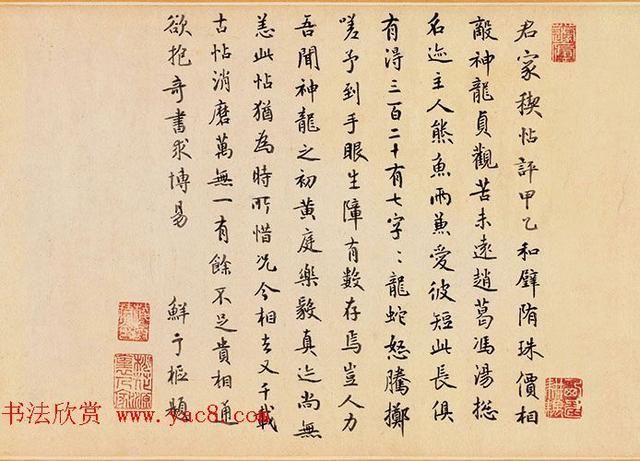 君家稧帖評甲乙和璧隋珠價相
敵神龍貞觀苦未遠趙葛馮湯捴
名迹主人熊魚兩兼愛彼短此長俱
有得三百二十有七字〻龍蛇怒騰擲
嗟予到手眼生障有數存焉豈人力
吾聞神龍之初黃庭樂毅真迹尚無
恙此帖猶為時所惜況今相去又千載
古帖消磨萬無一有餘不足貴相通
欲抱奇書求博易 鮮于樞題
书法欣赏 www.yac8.com